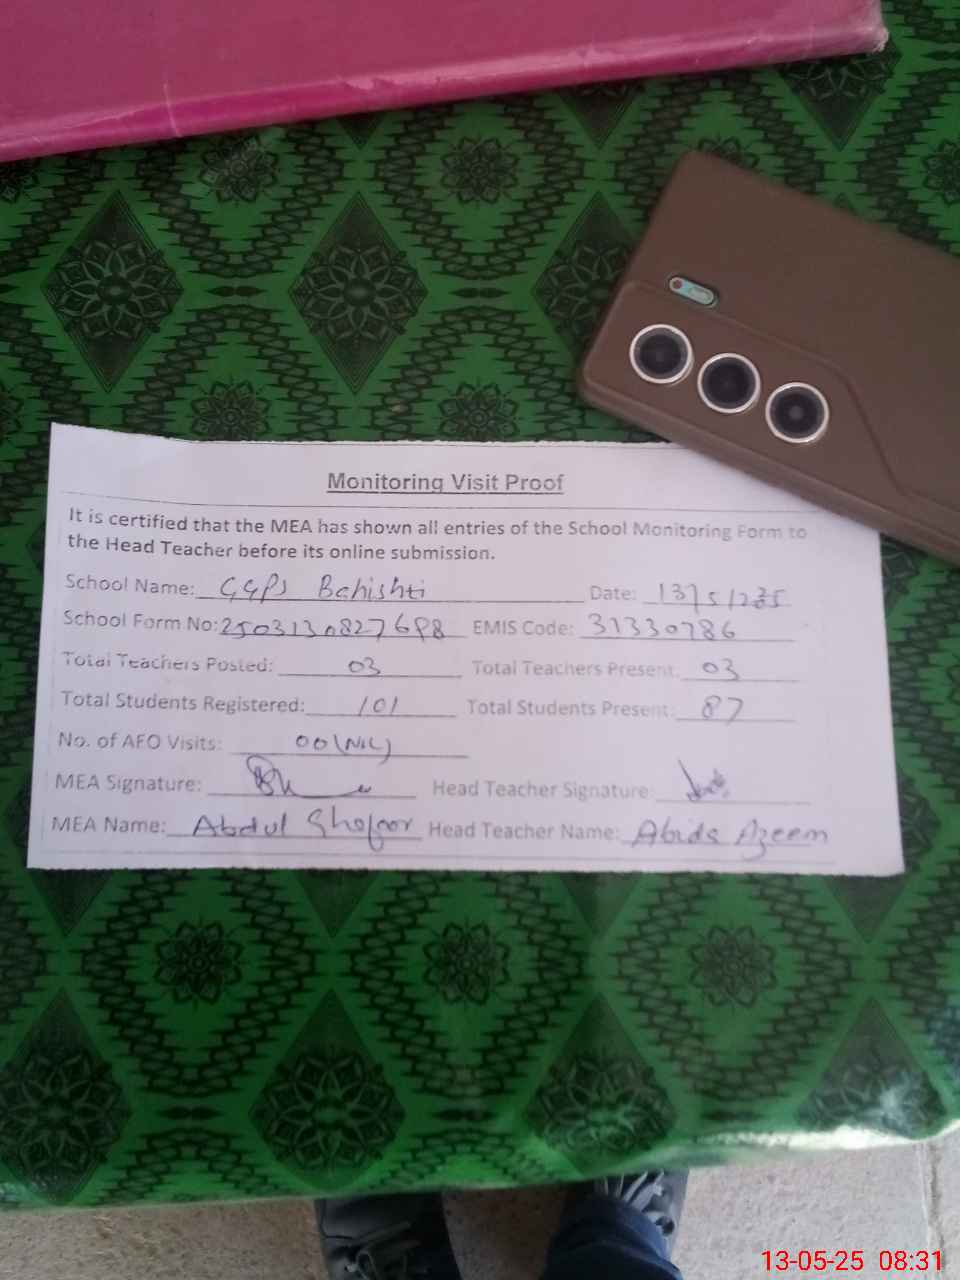 Monitoring Visit Proof
It is certified that the MEA has shown all entries of the School Monitoring Form to
the Head Teacher before its online submission.
School Name: GGPS Bahishti Date: 13/5/2025
School Form No: 2503130827698 EMIS Code: 31330786
Total Teachers Posted: 03 Total Teachers Present: 03
Total Students Registered: 101 Total Students Present: 87
No. of AEO Visits: 00 (NIL)
MEA Signature: Head Teacher Signature:
MEA Name: Abdul Ghafoor Head Teacher Name: Abida Azeem
13-05-25 08:31